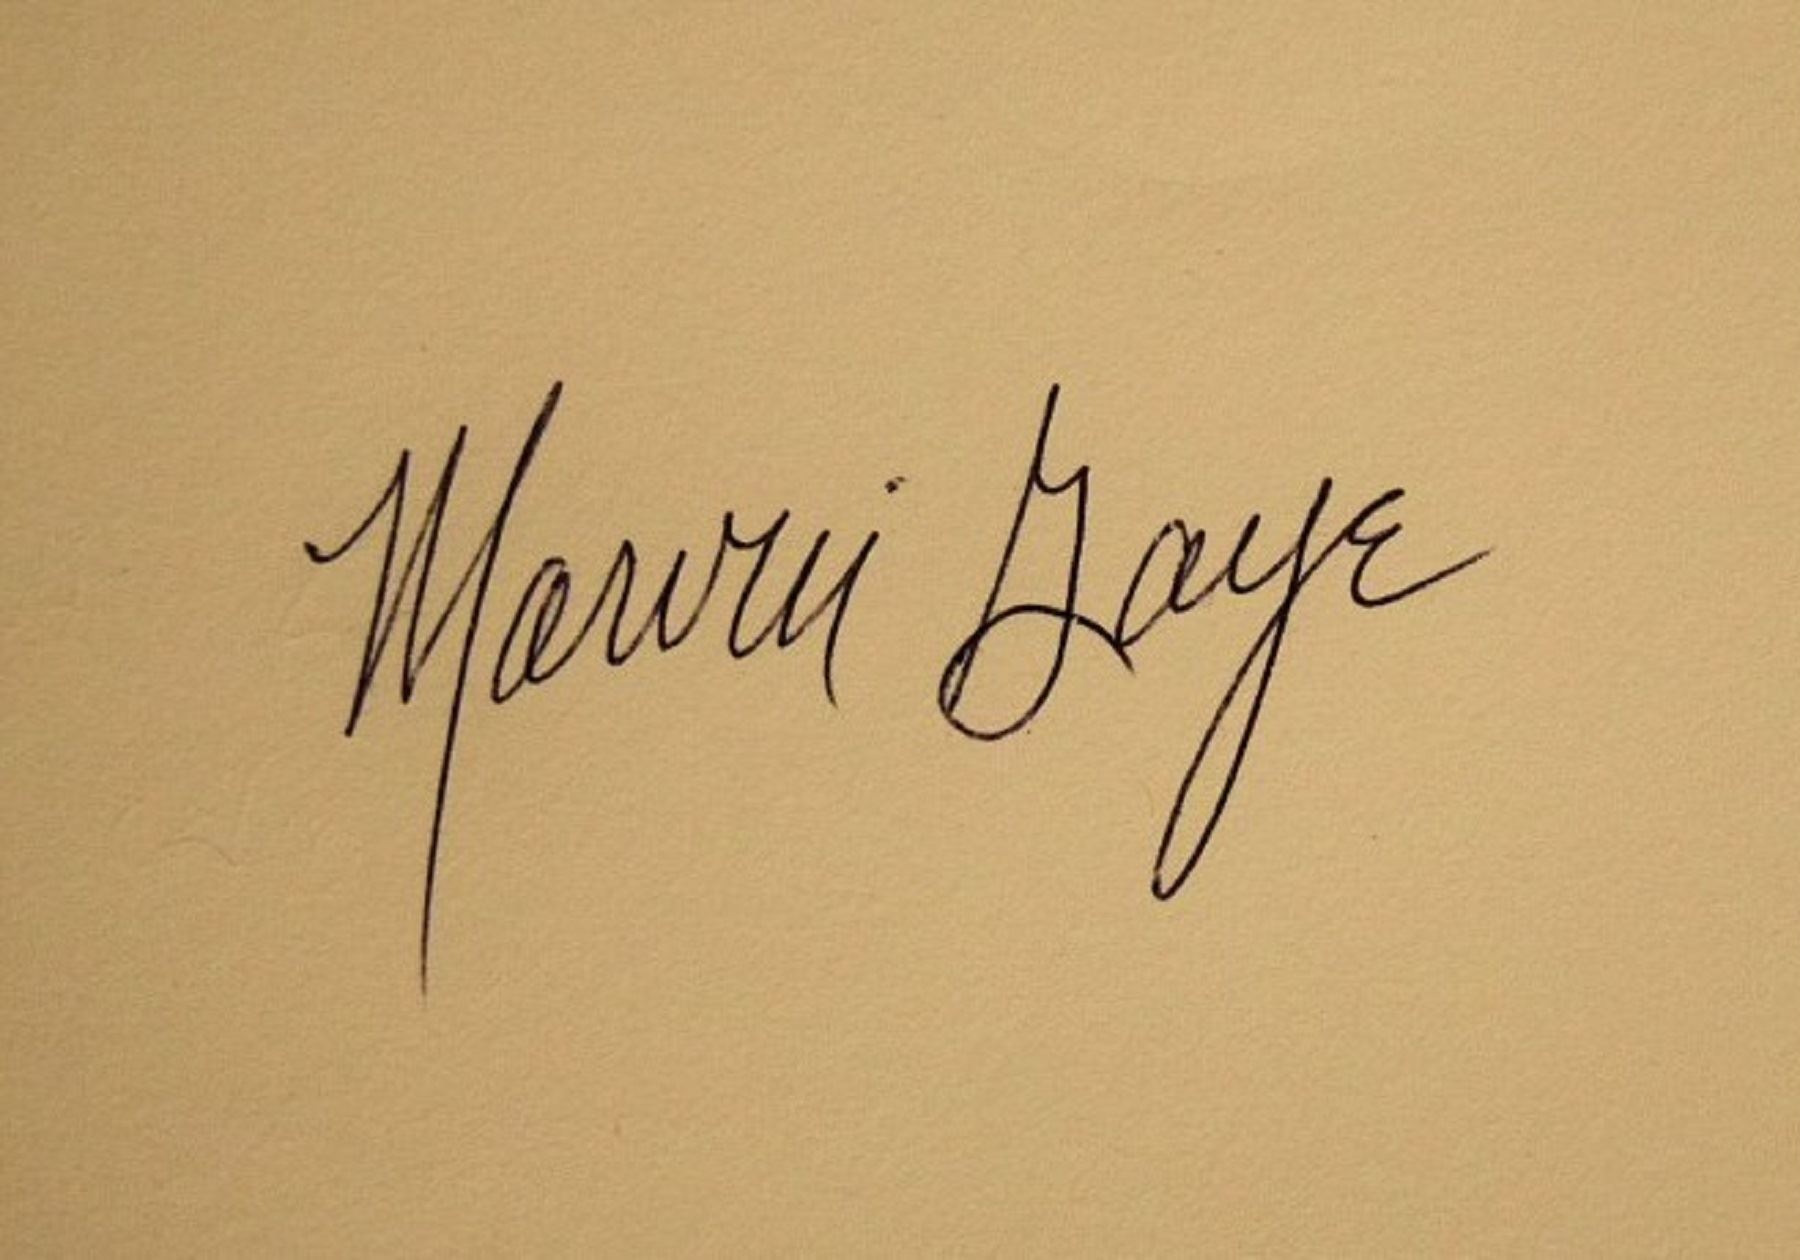 Marvin Gaye